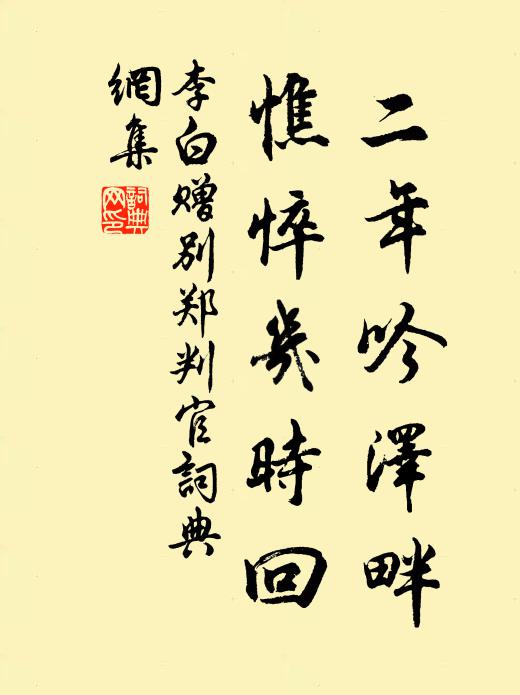 二年吟澤畔
憔悴幾時回
李白赠别郑判官詞典
網集
詞典網印